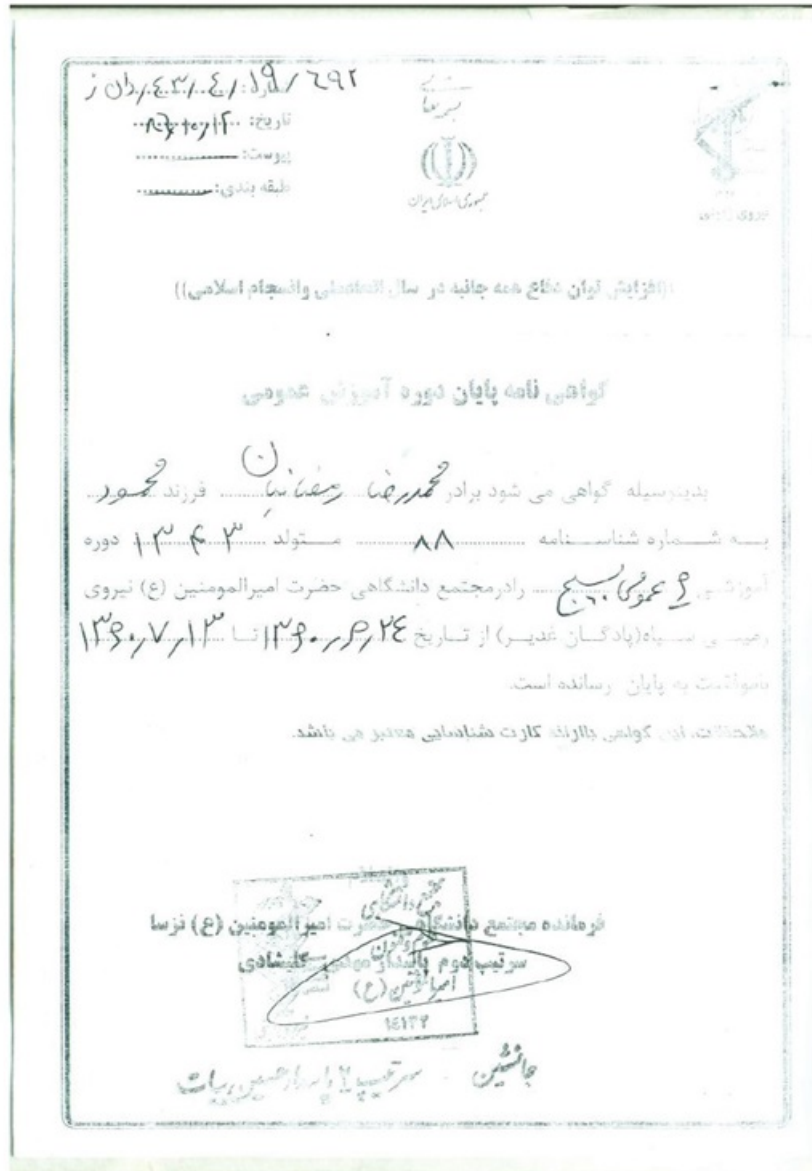 شماره: ۱۹/۶۹۲/۴/۴۳/د ان ز
تاریخ: ۸۶/۱۰/۱۲
پیوست:
طبقه بندی:
جمهوری اسلامی ایران
نیروی زمینی
((افزایش توان دفاع همه جانبه در سال اتحاد ملی وانسجام اسلامی))
گواهی نامه پایان دوره آموزش عمومی
بدینوسیله گواهی می شود برادر محمدرضا رمضانیان فرزند محمود
به شماره شناسنامه ۸۸ متولد ۱۳۴۳ دوره
آموزشی عمومی بسیج رادرمجتمع دانشگاهی حضرت امیرالمومنین (ع) نیروی
زمینی سپاه(پادگان غدیر) از تاریخ ۱۳۶۰/۶/۲۴ تا ۱۳۶۰/۷/۱۳
باموفقیت به پایان رسانده است.
ملاحظات: این گواهی باارائه کارت شناسایی معتبر می باشد.
فرمانده مجتمع دانشگاهی حضرت امیرالمومنین (ع) نزسا
سرتیپ دوم پاسدار مهدی کلیشادی
مجتمع دانشگاهی
امیرالمومنین (ع)
۱۴۱۳۲
جانشین سرتیپ ۲ پاسدار حسین بیات